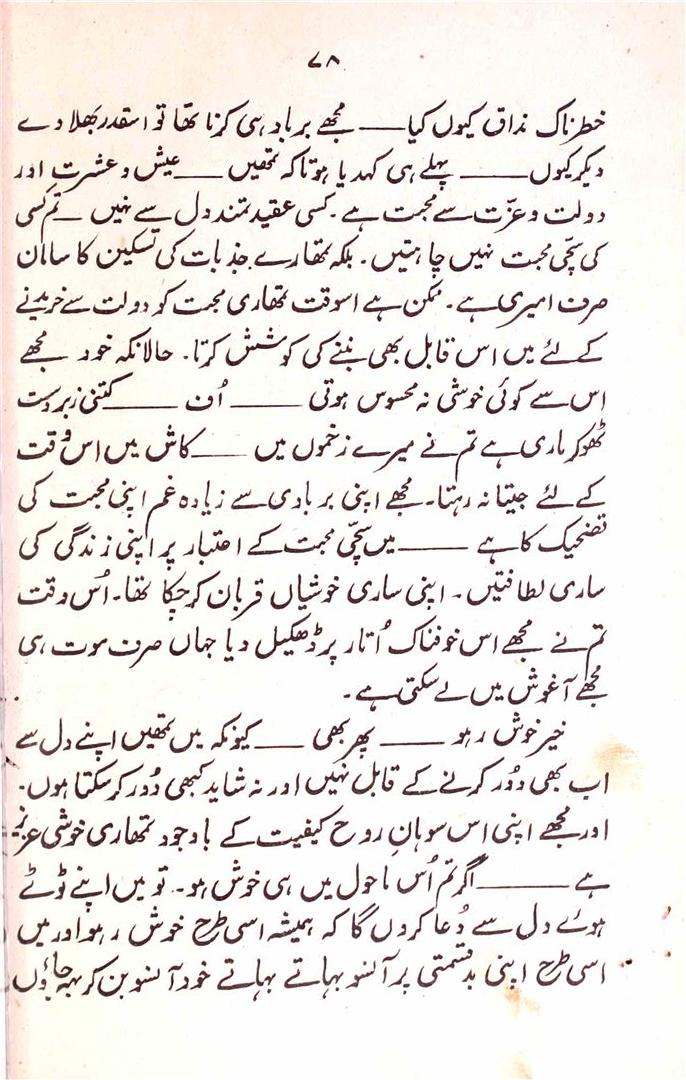 ۷۸
خطرناک مذاق کیوں کیا ــــ مجھے برباد ہی کرنا تھا تو اسقدر بھلا دے
دیکر کیوں ــــــ پہلے ہی کہدیا ہوتا کہ تمھیں ــــ عیش و عشرت اور
دولت و عزّت سے محبت ہے ۔ کسی عقیدتمند دل سے نہیں ــ تم کسی
کی سچّی محبت نہیں چاہتیں ۔ بلکہ تمھارے جذبات کی تسکین کا سامان
صرف امیری ہے ۔ ممکن ہے اسوقت تمھاری محبت کو دولت سے خریدنے
کے لئے میں اس قابل بھی بننے کی کوشش کرتا ۔ حالانکہ خود مجھے
اس سے کوئی خوشی نہ محسوس ہوتی ــــــ اُف ــــــ کتنی زبردست
ٹھوکر ماری ہے تم نے میرے زخموں میں ــــ کاش میں اس وقت
کے لئے جیتا نہ رہتا ۔ مجھے اپنی بربادی سے زیادہ غم اپنی محبت کی
تضحیک کا ہے ــــــ میں سچّی محبت کے اعتبار پر اپنی زندگی کی
ساری لطافتیں ۔ اپنی ساری خوشیاں قربان کر چکا تھا ۔ اُس وقت
تم نے مجھے اس خوفناک اُتار پر ڈھکیل دیا جہاں صرف موت ہی
مجھے آغوش میں لے سکتی ہے ۔
خیر خوش رہو ــــــ پھر بھی ــــ کیونکہ میں تمھیں اپنے دل سے
اب بھی دُور کرنے کے قابل نہیں اور نہ شاید کبھی دُور کر سکتا ہوں ۔
اور مجھے اپنی اس سوہانِ روح کیفیت کے باوجود تمھاری خوشی عزیز
ہے ــــــ اگر تم اُس ماحول میں ہی خوش ہو ۔ تو میں اپنے ٹوٹے
ہوئے دل سے دُعا کروں گا کہ ہمیشہ اسی طرح خوش رہو اور میں
اسی طرح اپنی بدقسمتی پر آنسو بہاتے بہاتے خود آنسو بن کر بہہ جاؤں